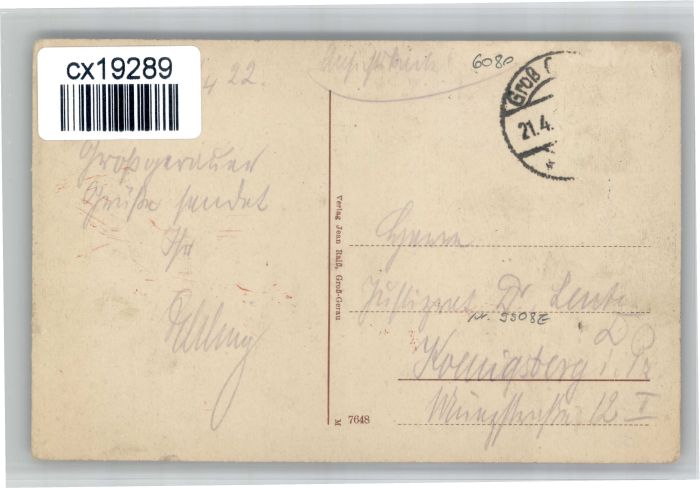 cx19289
4 22.
Ansichtskarte
6080
Groß
21.4.
Großgerauer
Grüße sendet
Ihr
Verlag Jean Raiß, Groß-Gerau
Herrn
Justizrat Dr.
Nr. 5508Z
Koenigsberg i. Pr
Münzstraße 12 I
M 7648